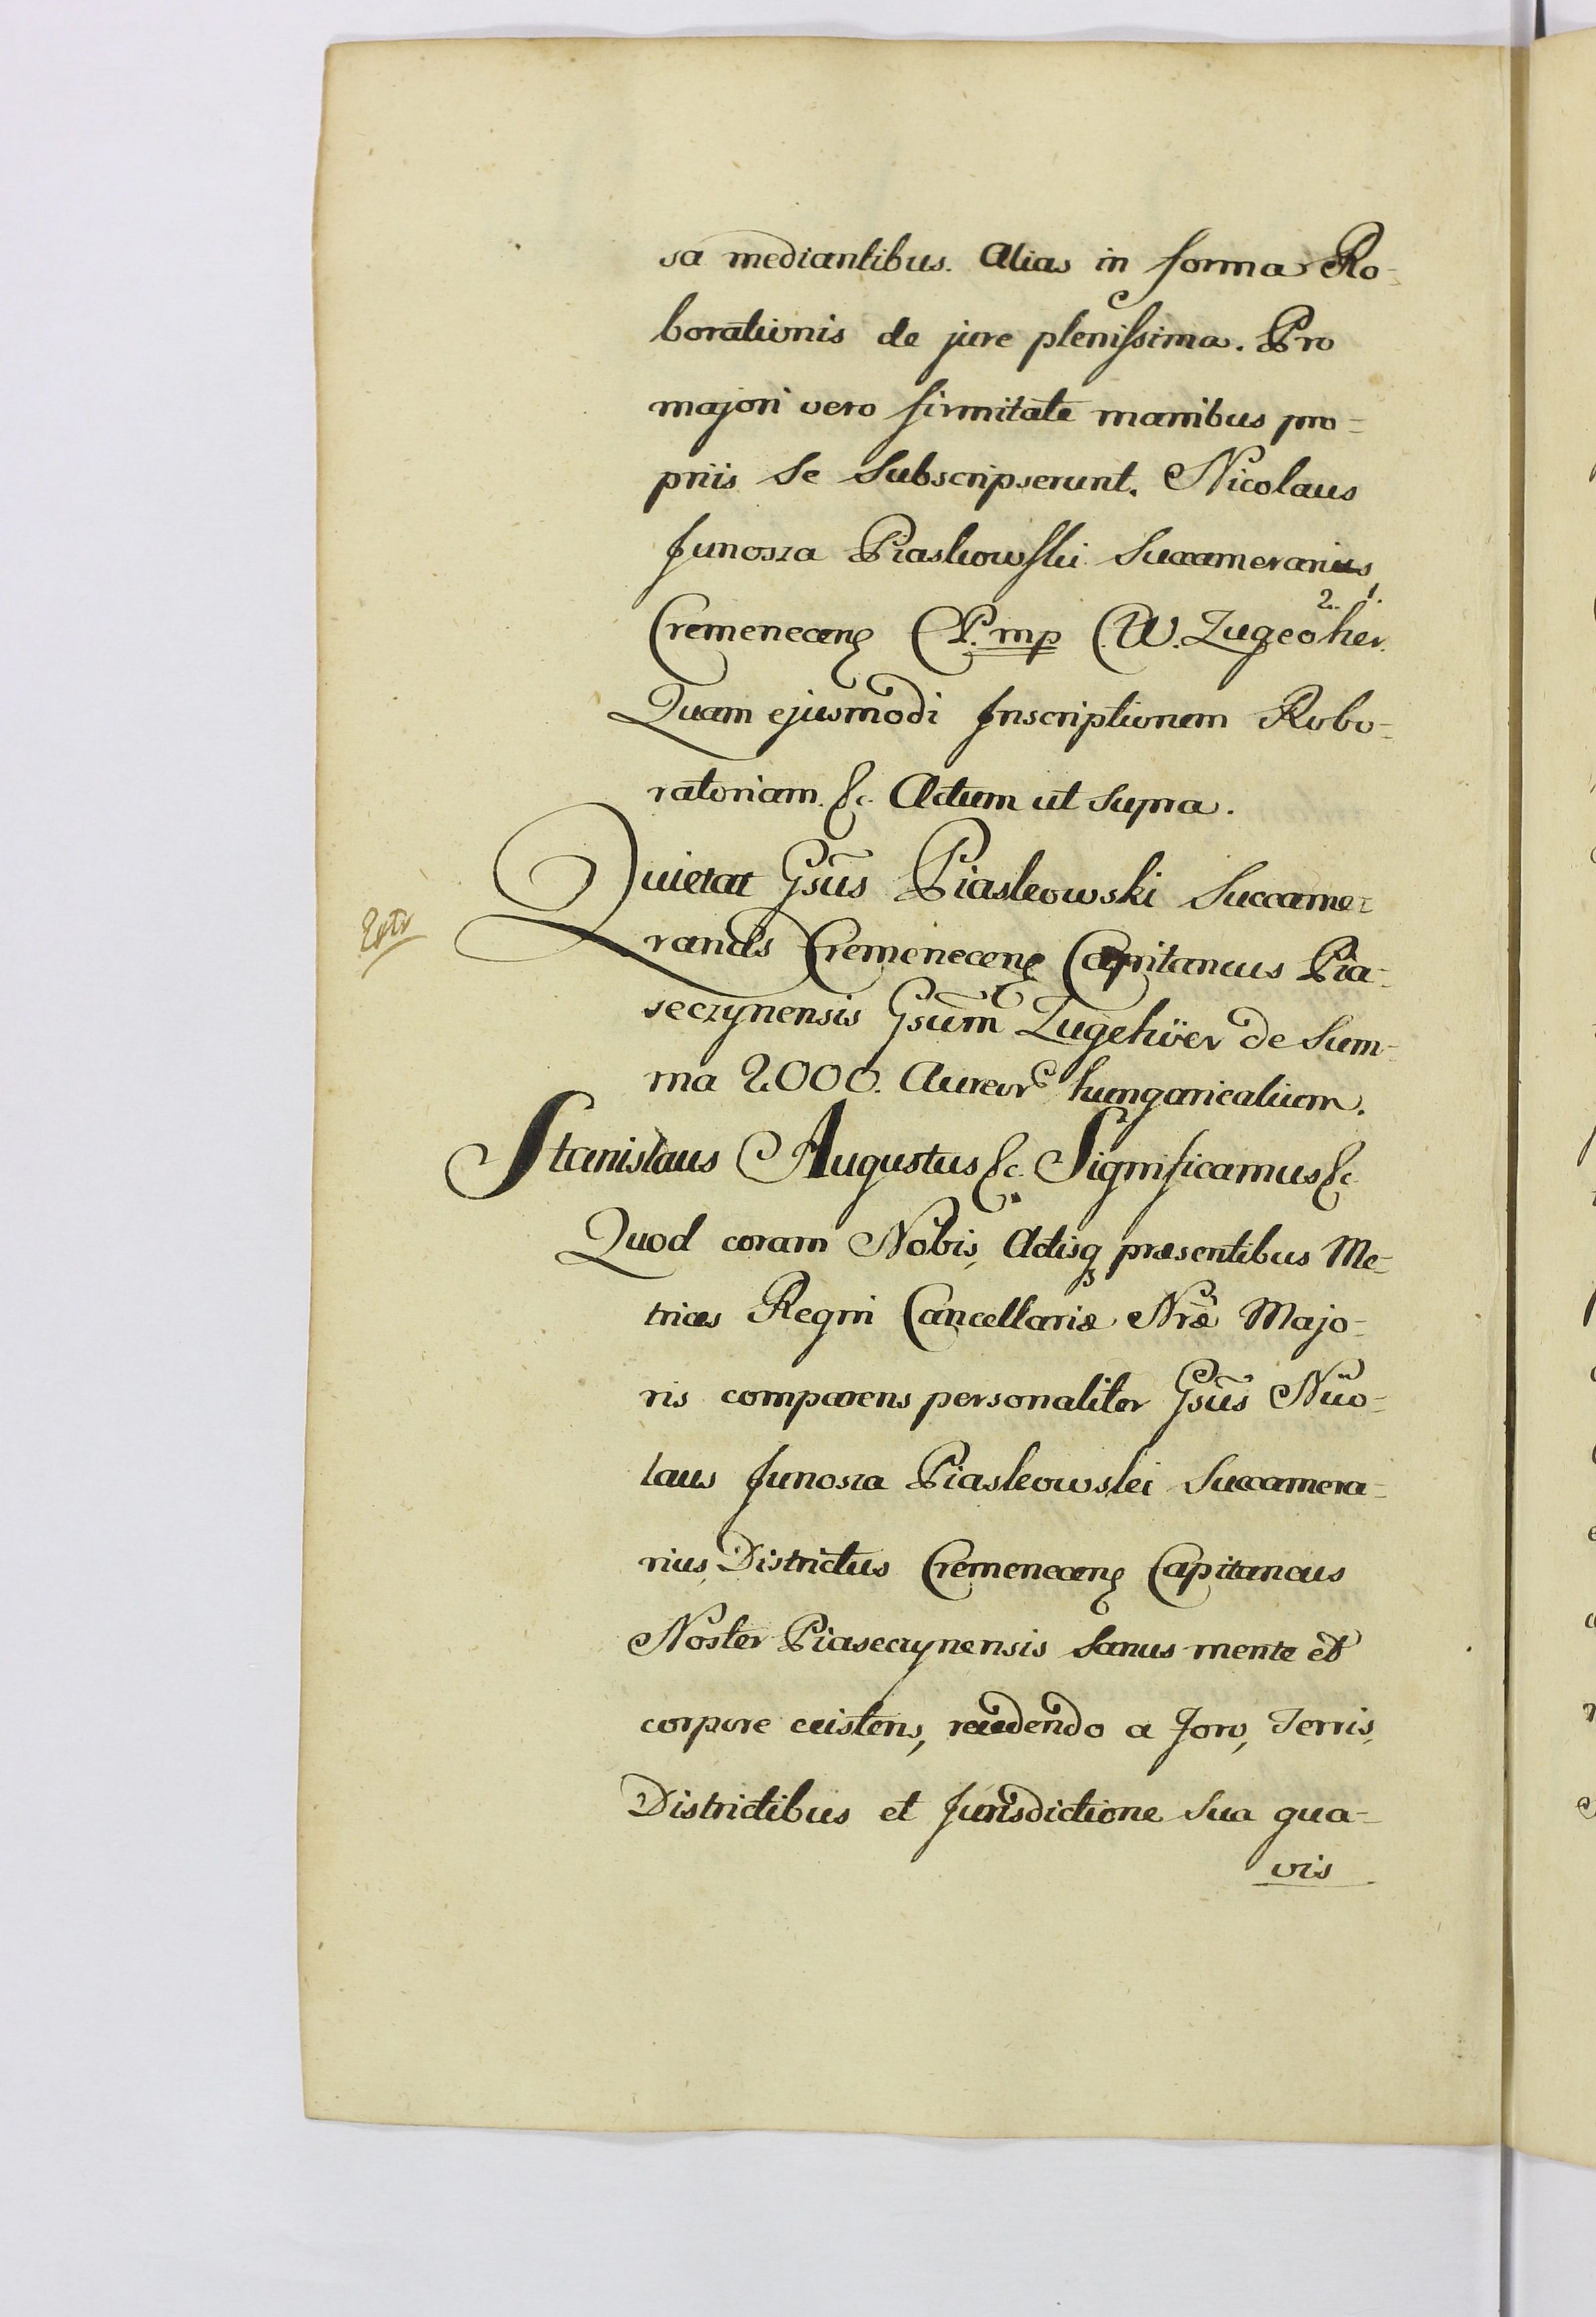 sa mediantibus. Alias in forma Ro-
borationis de jure plenissima. Pro
majori vero firmitate manibus pro-
priis se subscripserunt. Nicolaus
Junosza Piaskowski Succamerarius
Cremenecens P. mp W. Zugeoher
2. 1.
Quam ejusmodi Inscriptionem Robo-
ratoriam. &c. Actum ut supra.
Quietat Gsūs Piaskowski Succame-
Cremenecens Capitaneus Pia-
seczynensis Gsūm Zugehöer de Sum-
ma 2000. Aureor hungaricalium.
Stanislaus Augustus &c. Significamus &c
Quod coram Nobis, Actisq præsentibus Me-
trices Regni Cancellariæ Nræ Majo-
ris comparens personaliter Gsūs Nico-
laus Junosza Piaskowski Succamera-
rius Districtus Cremenecens Capitaneus
Noster Piaseczynensis sanus mente et
corpore existens, recedendo a Foro, Terris,
Districtibus et Jurisdictione sua qua-
vis